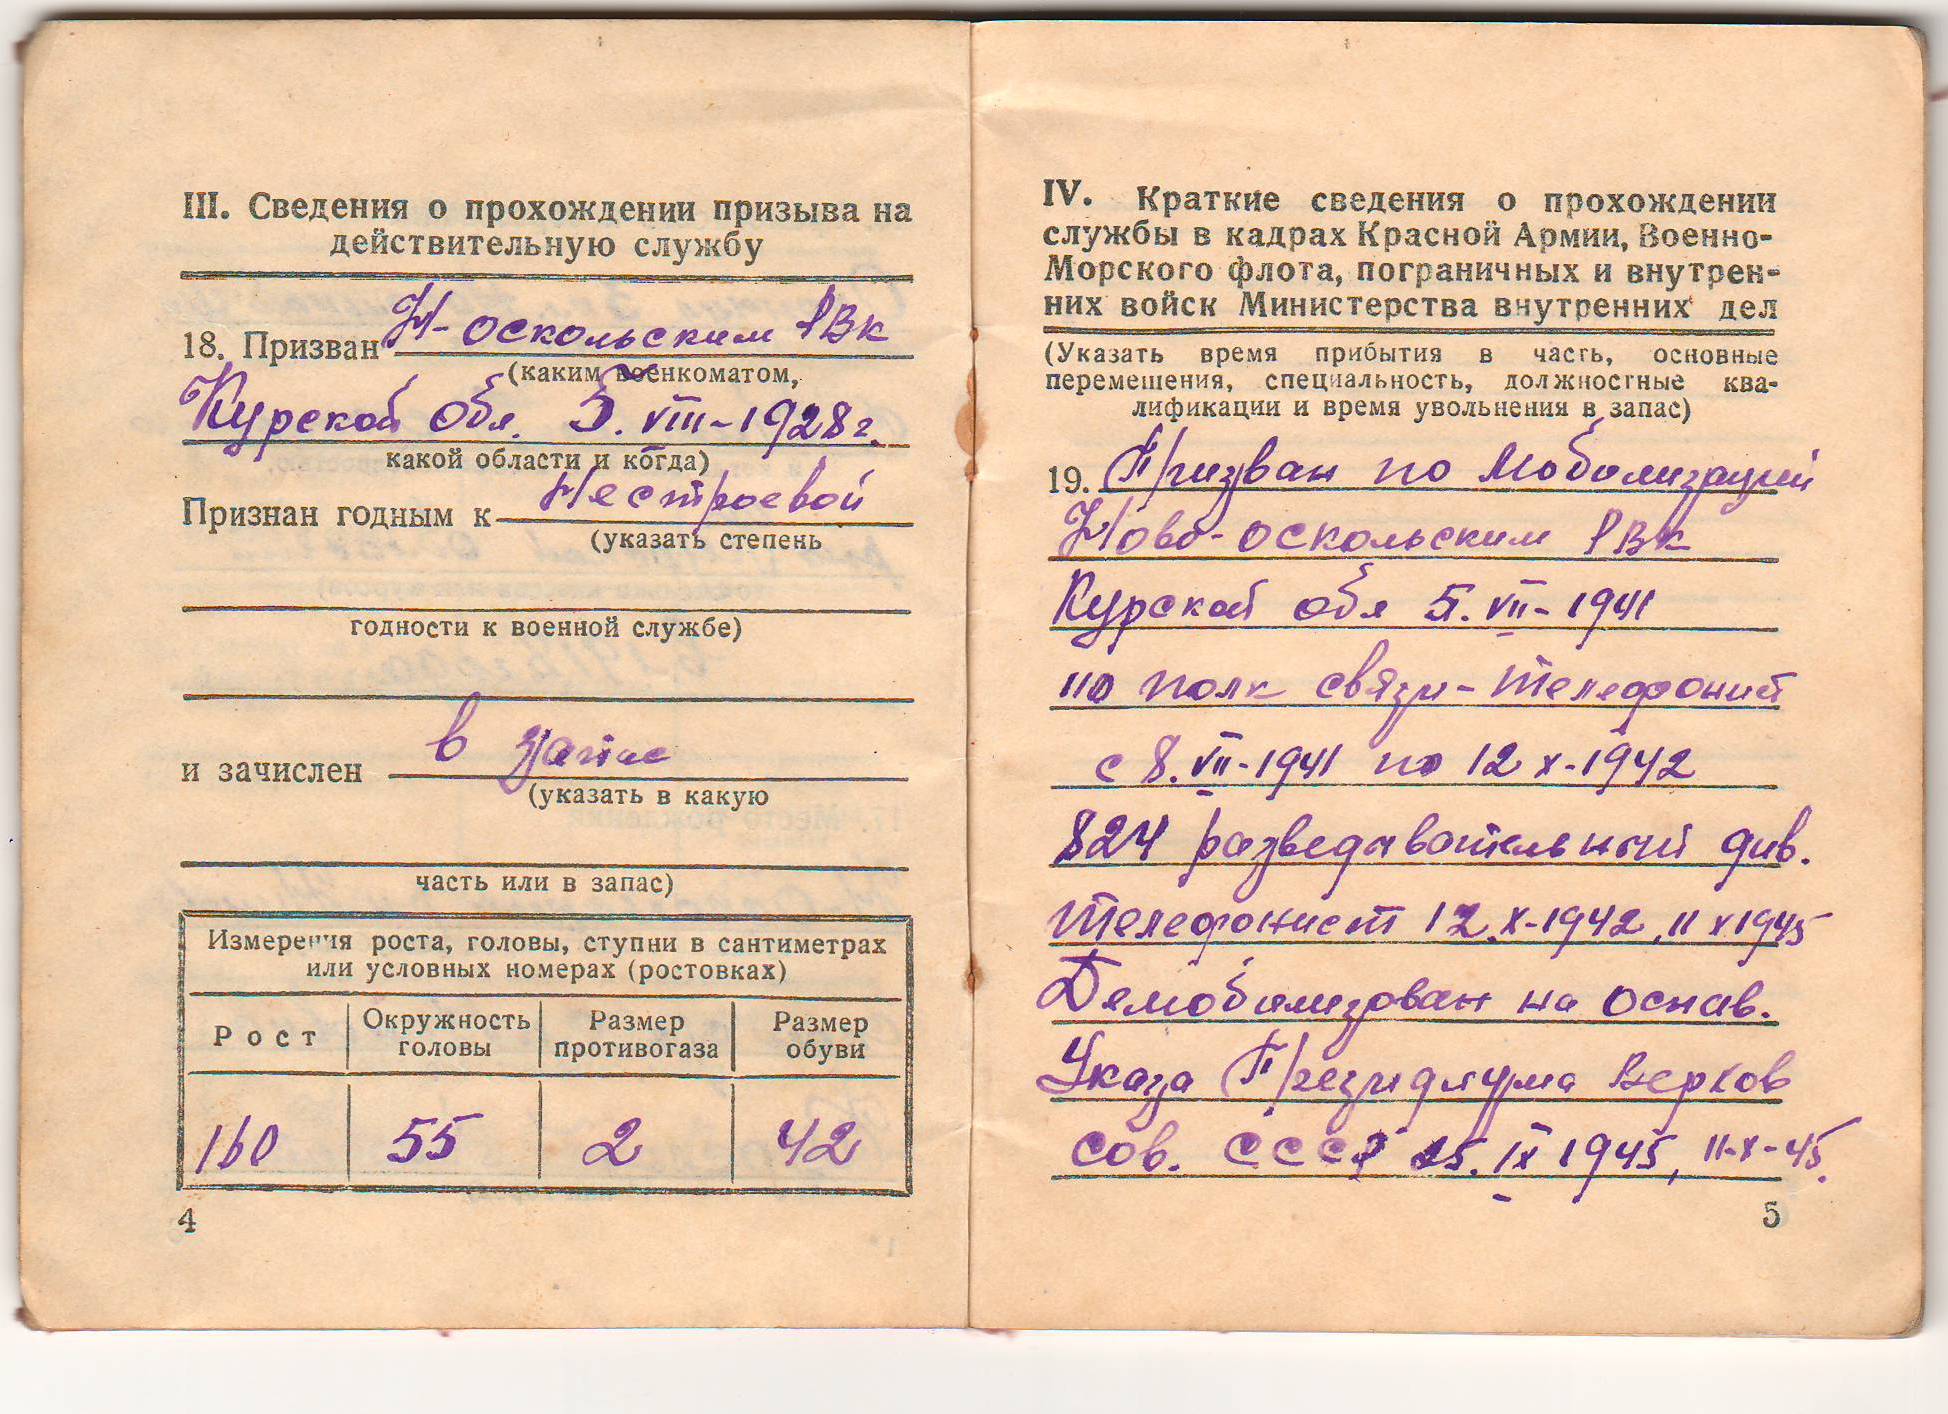 III. Сведения о прохождении призыва на
действительную службу
18. Призван Н-оскольским РВК
(каким военкоматом,
Курской обл. 5. VIII-1928г.
какой области и когда)
Признан годным к нестроевой
(указать степень
годности к военной службе)
и зачислен в запас
(указать в какую
часть или в запас)
Измерения роста, головы, ступни в сантиметрах
или условных номерах (ростовках)
Рост Окружность головы Размер противогаза Размер обуви
160 55 2 42
4
IV. Краткие сведения о прохождении
службы в кадрах Красной Армии, Военно-
Морского флота, пограничных и внутрен-
них войск Министерства внутренних дел
(Указать время прибытия в часть, основные
перемещения, специальность, должностные ква-
лификации и время увольнения в запас)
19. Призван по мобилизации
Ново-оскольским РВК
Курской обл 5. VII-1941
110 полк связи - телефонист
с 8. VII-1941 по 12 X-1942
824 разведывательный див.
телефонист 12.X-1942, 11 X 1945
Демобилизован на основ.
Указа Президиума Верхов
Сов. СССР 25. IX 1945, 11-X-45.
5